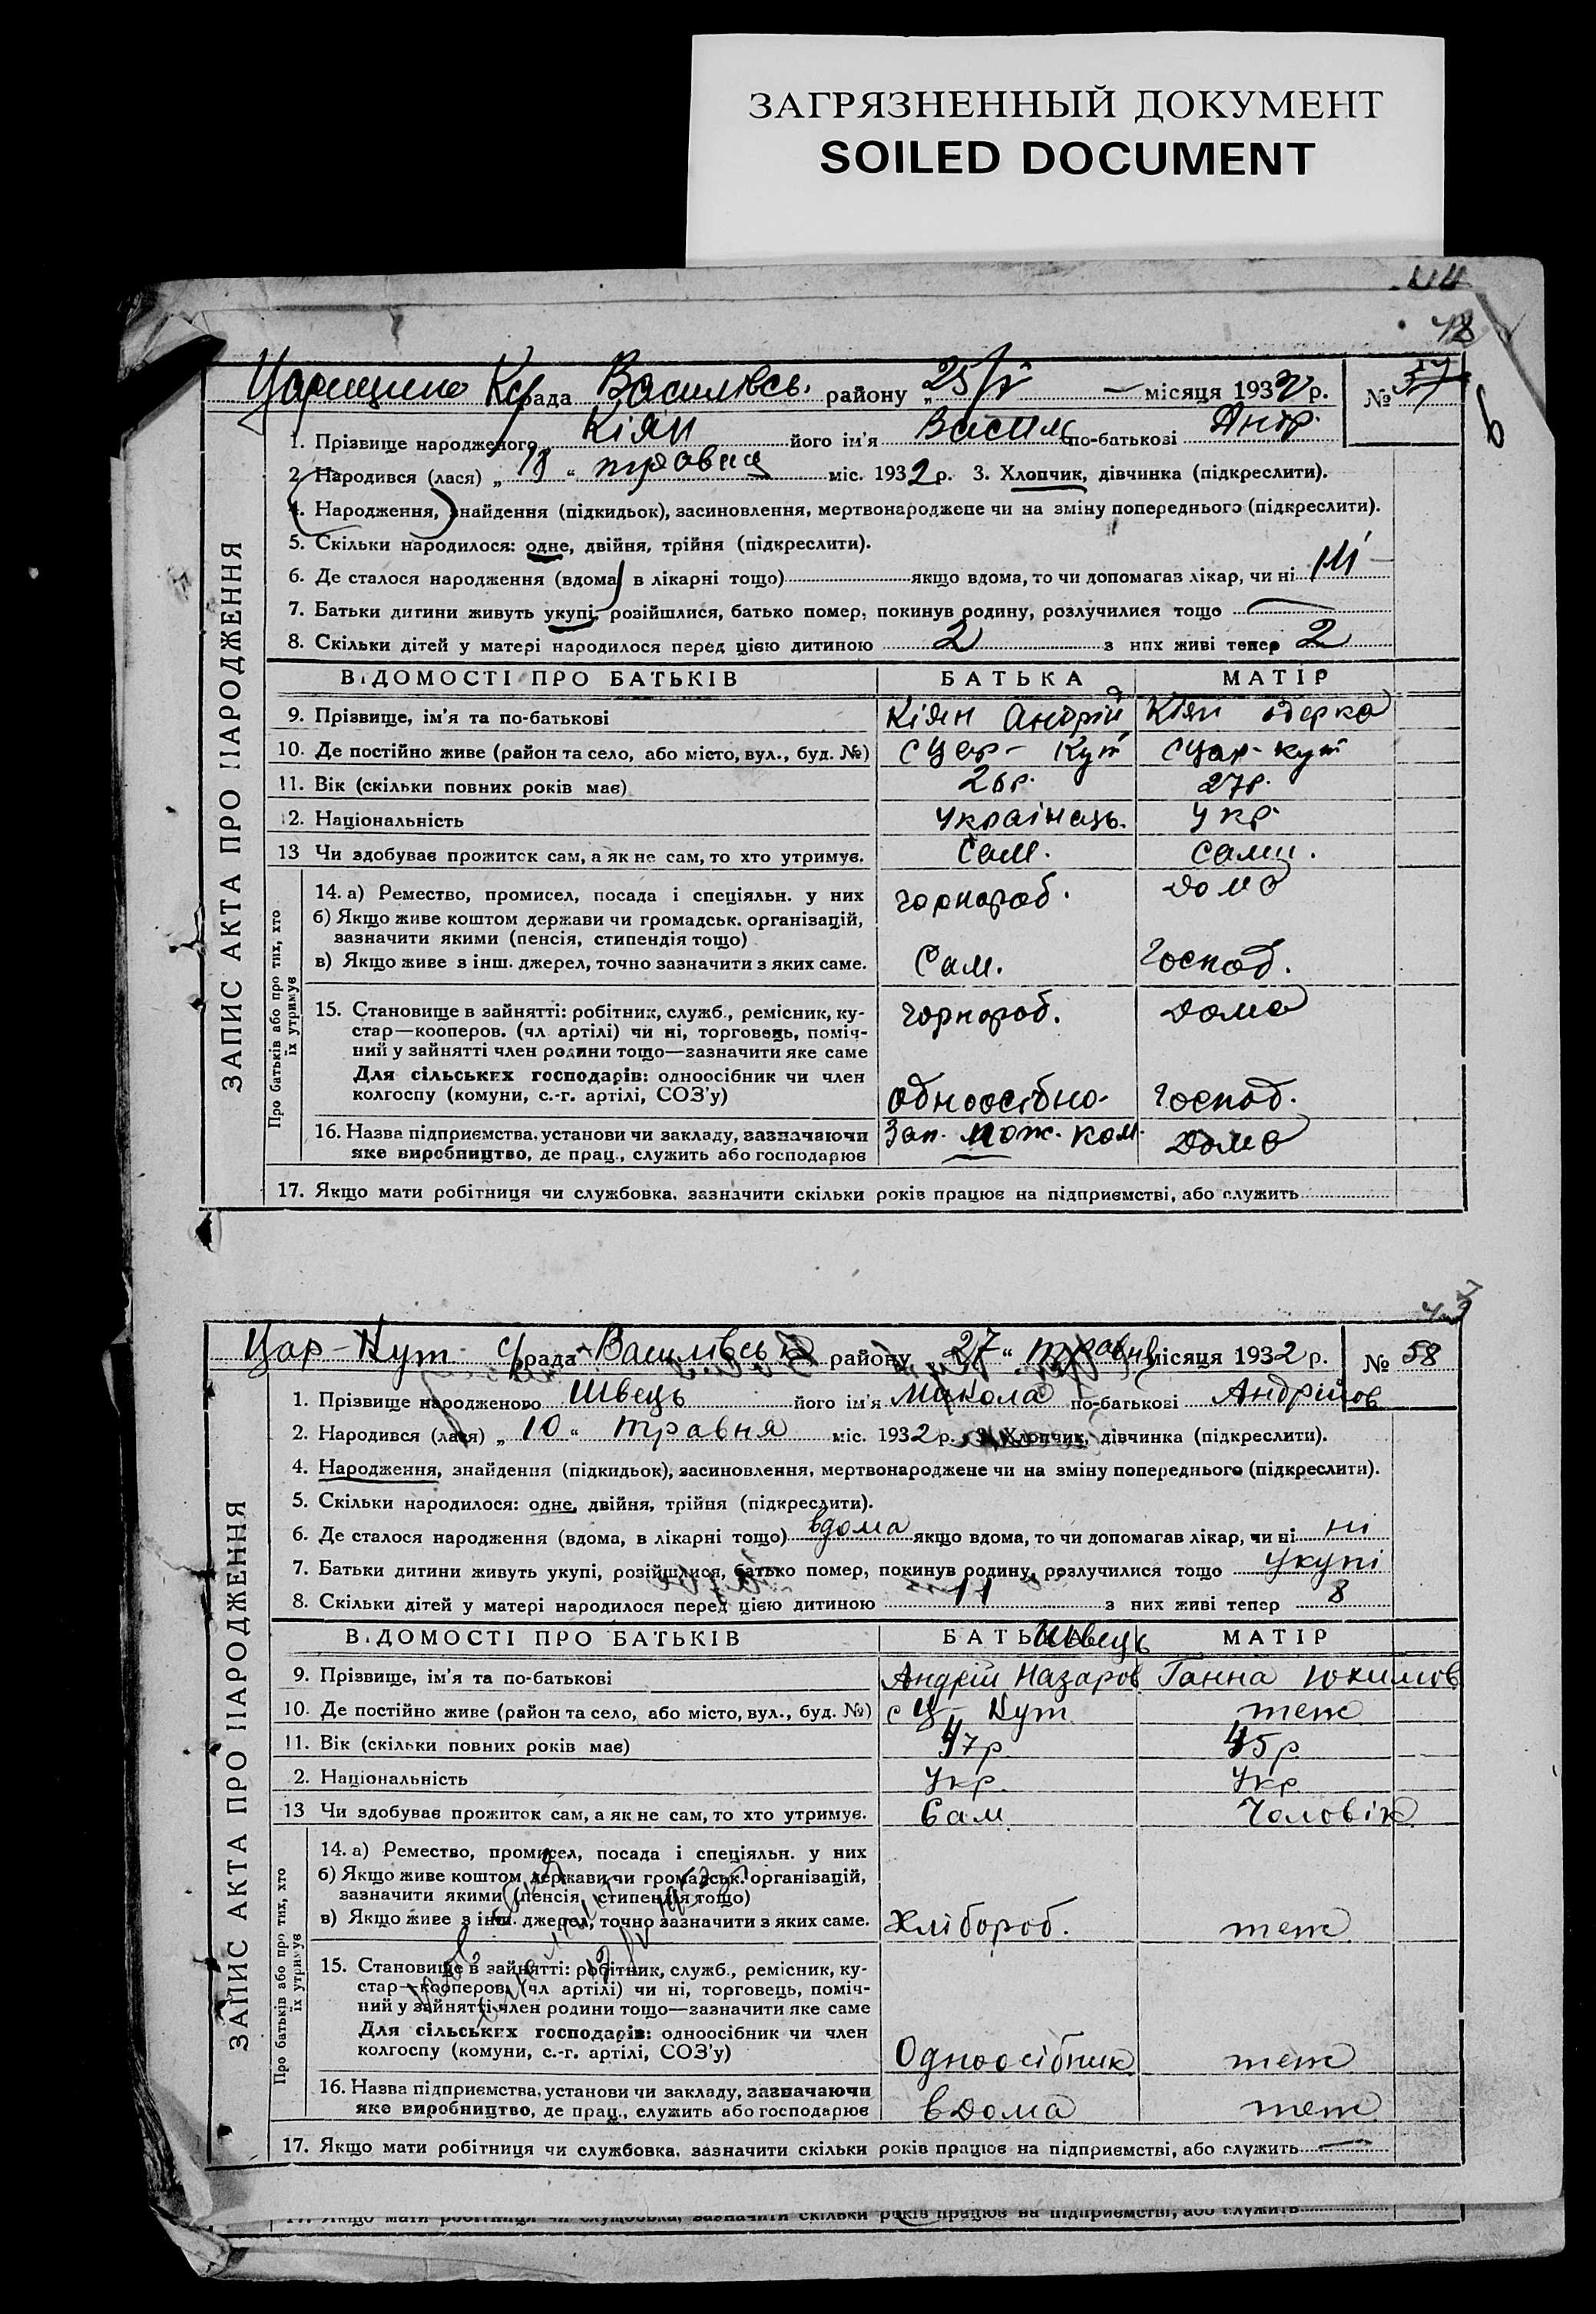 ЗАГРЯЗНЕННЫЙ ДОКУМЕНТ
SOILED DOCUMENT
48
рада Василівсь. району „25/V — місяця 1932 р. № 57
1. Прізвище народженого Кіян його ім'я Василь по-батькові Андр.
2. Народився (лася) „ “ травня міс. 1932 р. 3. Хлопчик, дівчинка (підкреслити).
4. Народження, знайдення (підкидьок), засиновлення, мертвонароджене чи на зміну попереднього (підкреслити).
5. Скільки народилося: одне, двійня, трійня (підкреслити).
6. Де сталося народження (вдома, в лікарні тощо) якщо вдома, то чи допомагав лікар, чи ні ні
7. Батьки дитини живуть укупі, розійшлися, батько помер, покинув родину, розлучилися тощо
8. Скільки дітей у матері народилося перед цією дитиною 2 з них живі тепер 2
ЗАПИС АКТА ПРО НАРОДЖЕННЯ
ВІДОМОСТІ ПРО БАТЬКІВ БАТЬКА МАТІР
9. Прізвище, ім'я та по-батькові Кіян Андрій Кіян
10. Де постійно живе (район та село, або місто, вул., буд. №) с Цар-Кут с Цар-Кут
11. Вік (скільки повних років має) 26 р. 27 р.
12. Національність Українець. Укр.
13 Чи здобуває прожиток сам, а як не сам, то хто утримує. Сам. Сами.
Про батьків або про тих, хто їх утримує
14. а) Ремество, промисел, посада і спеціяльн. у них чорнороб. Дома
б) Якщо живе коштом держави чи громадськ. організацій,
зазначити якими (пенсія, стипендія тощо)
в) Якщо живе з інш. джерел, точно зазначити з яких саме. Сам. Господ.
15. Становище в зайнятті: робітник, служб., ремісник, ку- чорнороб. Дома
стар—кооперов. (чл. артілі) чи ні, торговець, поміч-
ний у зайнятті член родини тощо—зазначити яке саме
Для сільських господарів: одноосібник чи член
колгоспу (комуни, с.-г. артілі, СОЗ'у) одноосібно. Господ.
16. Назва підприємства, установи чи закладу, зазначаючи Зап. ком. Дома
яке виробництво, де прац., служить або господарює
17. Якщо мати робітниця чи службовка, зазначити скільки років працює на підприємстві, або служить
Цар-Кут с/рада Василівська району „27“ травня місяця 1932 р. № 58
1. Прізвище народженого Швець його ім'я Микола по-батькові Андрійов
2. Народився (лася) „10“ травня міс. 1932 р. 3. Хлопчик, дівчинка (підкреслити).
4. Народження, знайдення (підкидьок), засиновлення, мертвонароджене чи на зміну попереднього (підкреслити).
5. Скільки народилося: одне, двійня, трійня (підкреслити).
6. Де сталося народження (вдома, в лікарні тощо) вдома якщо вдома, то чи допомагав лікар, чи ні ні
7. Батьки дитини живуть укупі, розійшлися, батько помер, покинув родину, розлучилися тощо укупі
8. Скільки дітей у матері народилося перед цією дитиною 11 з них живі тепер 8
ЗАПИС АКТА ПРО НАРОДЖЕННЯ
ВІДОМОСТІ ПРО БАТЬКІВ БАТЬКА Швець МАТІР
9. Прізвище, ім'я та по-батькові Андрій Назаров Ганна Юхимов
10. Де постійно живе (район та село, або місто, вул., буд. №) с Ц-Кут теж
11. Вік (скільки повних років має) 47 р 45 р
2. Національність Укр. Укр
13 Чи здобуває прожиток сам, а як не сам, то хто утримує. Сам Чоловік
Про батьків або про тих, хто їх утримує
14. а) Ремество, промисел, посада і спеціяльн. у них
б) Якщо живе коштом держави чи громадськ. організацій,
зазначити якими (пенсія, стипендія тощо)
в) Якщо живе з інш. джерел, точно зазначити з яких саме. Хлібороб. теж
15. Становище в зайнятті: робітник, служб., ремісник, ку-
стар—кооперов. (чл артілі) чи ні, торговець, поміч-
ний у зайнятті член родини тощо—зазначити яке саме
Для сільських господарів: одноосібник чи член
колгоспу (комуни, с.-г. артілі, СОЗ'у) Одноосібник теж
16. Назва підприємства, установи чи закладу, зазначаючи
яке виробництво, де прац., служить або господарює вдома теж
17. Якщо мати робітниця чи службовка, зазначити скільки років працює на підприємстві, або служить —
17. Якщо мати робітниця чи службовка, зазначити скільки років працює на підприємстві, або служить